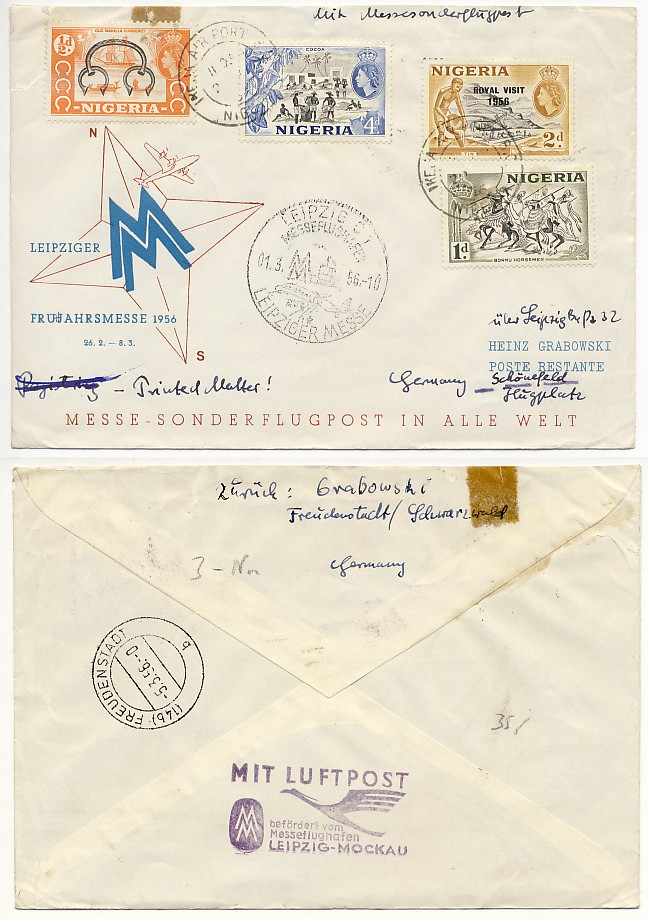 Mit Messesonderflugpost
½d
OLD MANILLA CURRENCY
NIGERIA
COCOA
NIGERIA 4d
NIGERIA
ROYAL VISIT
1956
2d
NIGERIA
1d
BORNU HORSEMEN
IKEJA AIR PORT
N
LEIPZIGER
MM
FRÜHJAHRSMESSE 1956
26. 2. – 8. 3.
S
LEIPZIG
MESSEFLUGHAFEN
01.3. 56.-10
LEIPZIGER MESSE
über Leipzig
HEINZ GRABOWSKI
POSTE RESTANTE
Germany – Schönefeld
Flugplatz
– Printed Matter!
MESSE-SONDERFLUGPOST IN ALLE WELT
Zurück: Grabowski
Freudenstadt/Schwarzwald
Germany
3-Nov
(14b) FREUDENSTADT
-5.3.56.-0
b
35/
MIT LUFTPOST
MM
befördert vom
Messeflughafen
LEIPZIG-MOCKAU